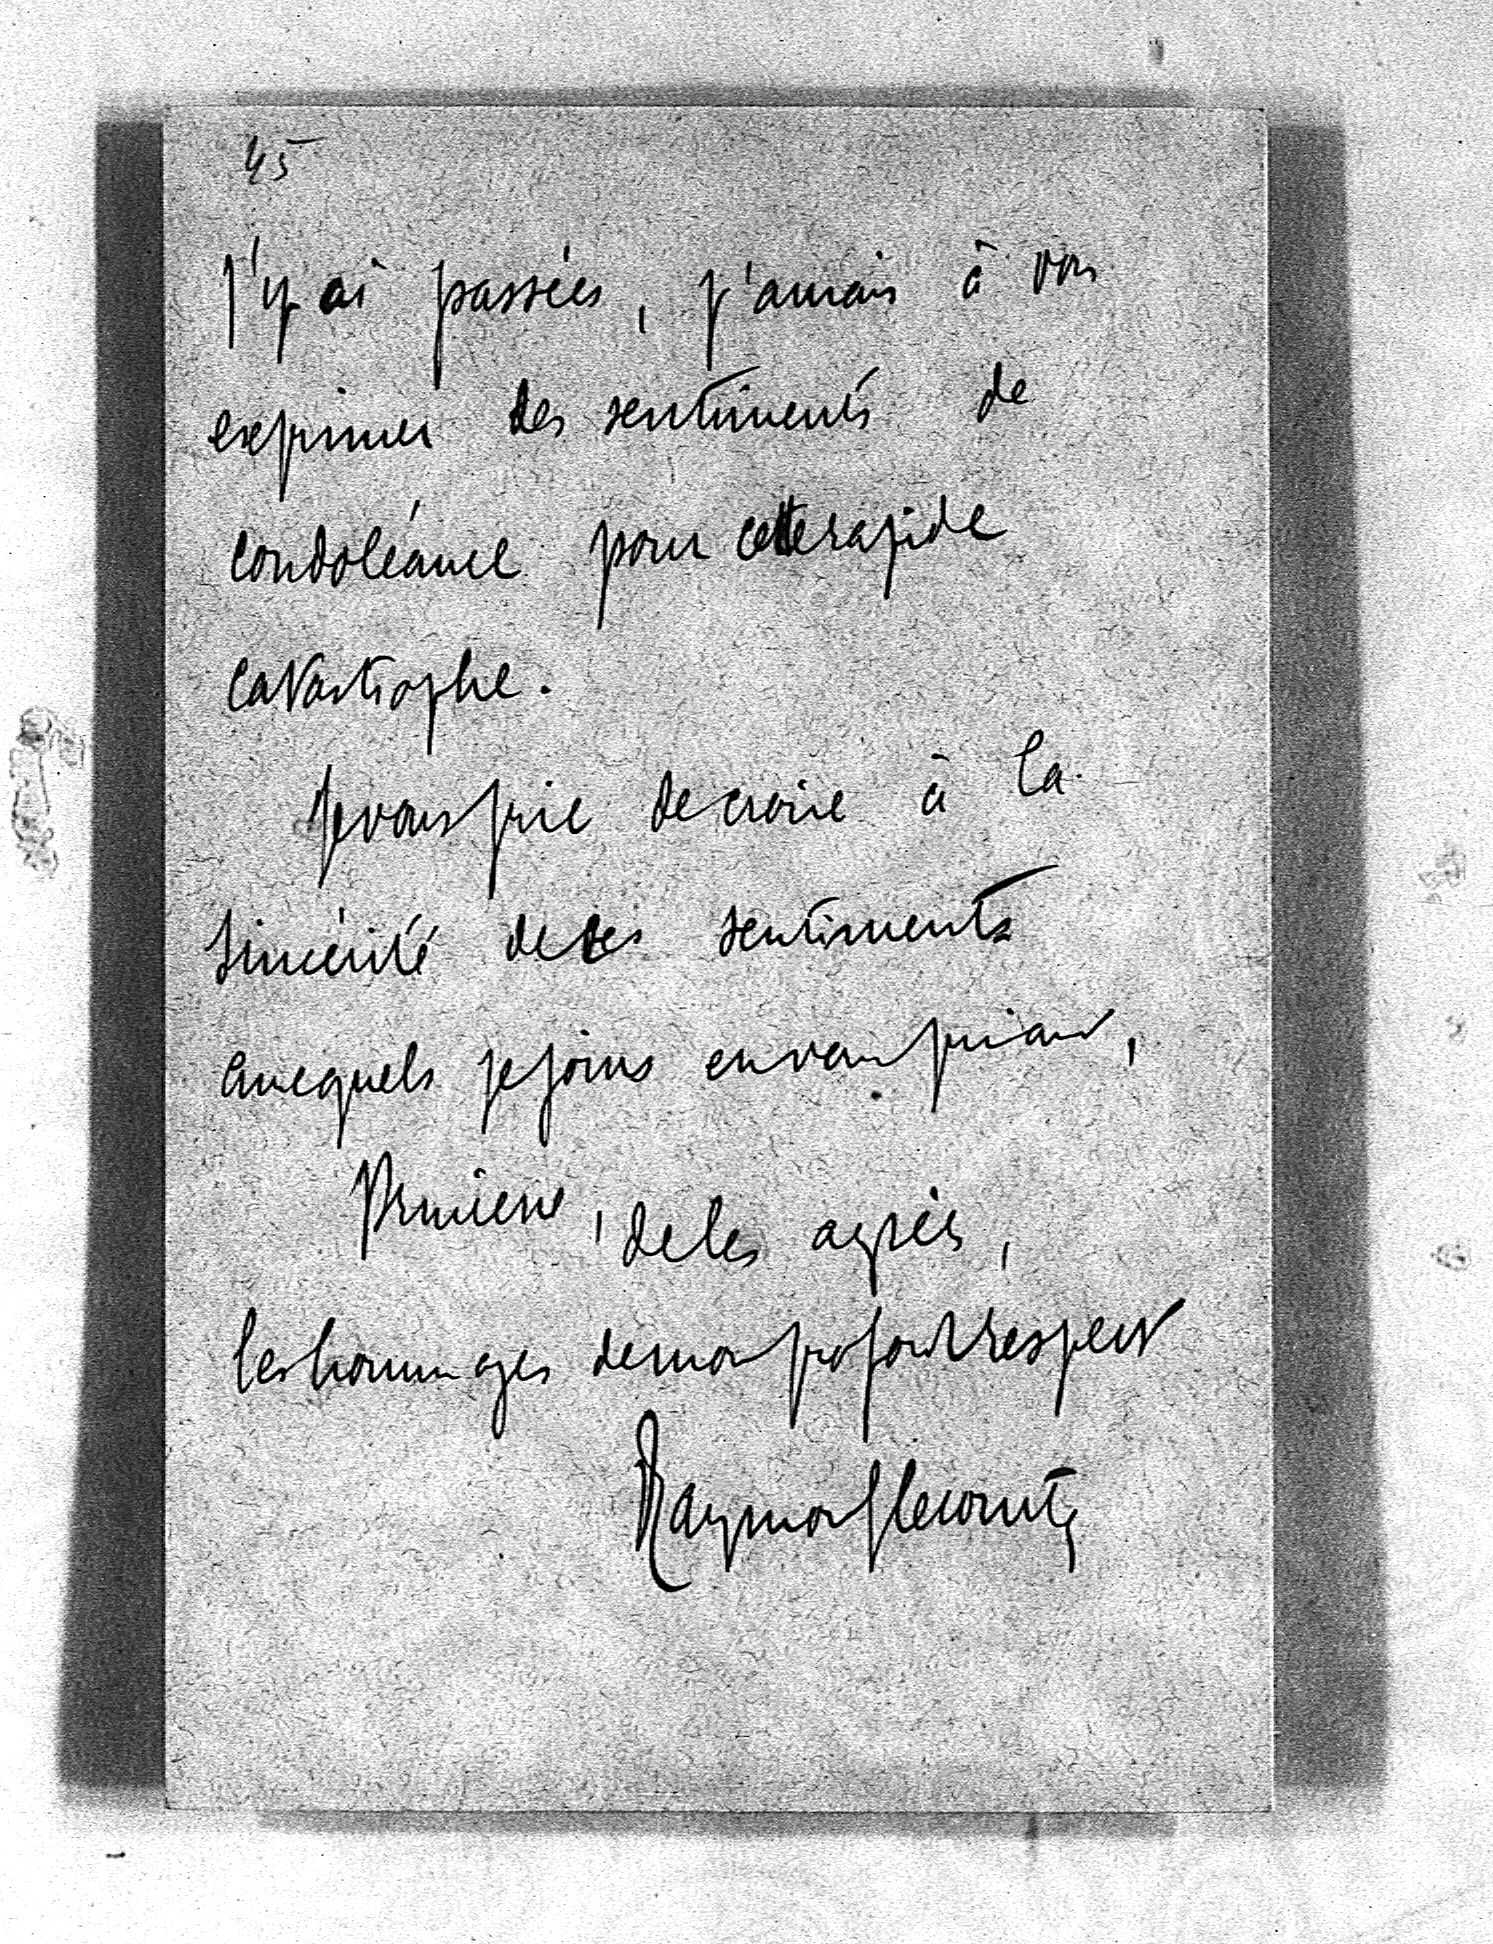 45
j'y ai passées, j'aurais à vous
exprimer des sentiments de
condoléance pour cette rapide
catastrophe.
Je vous prie de croire à la
sincérité de ces sentiments
auxquels je joins en vous priant,
de les agréer,
les hommages de mon profond respect
Raymond Lecomte